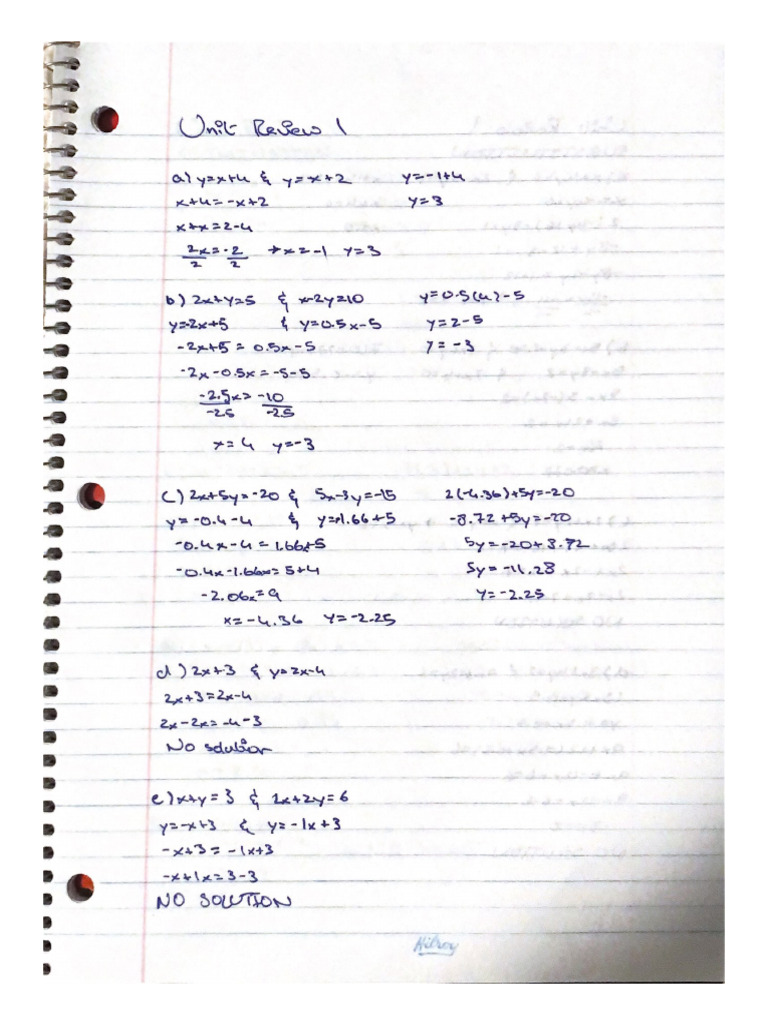 Unit Review 1
a) y=x+4 & y=-x+2 y=-1+4
x+4=-x+2 y=3
x+x=2-4
2x=-2 → x=-1 y=3
2 2
b) 2x+y=5 & x-2y=10 y=0.5(4)-5
y=-2x+5 & y=0.5x-5 y=2-5
-2x+5=0.5x-5 y=-3
-2x-0.5x=-5-5
-2.5x=-10
-2.5 -2.5
x=4 y=-3
c) 2x+5y=-20 & 5x-3y=-15 2(-4.36)+5y=-20
y=-0.4-4 & y=1.66+5 -8.72+5y=-20
-0.4x-4=1.66x+5 5y=-20+8.72
-0.4x-1.66x=5+4 5y=-11.28
-2.06x=9 y=-2.25
x=-4.36 y=-2.25
d) 2x+3 & y=2x-4
2x+3=2x-4
2x-2x=-4-3
No solution
e) x+y=3 & 2x+2y=6
y=-x+3 & y=-1x+3
-x+3=-1x+3
-x+1x=3-3
NO SOLUTION
Hilroy